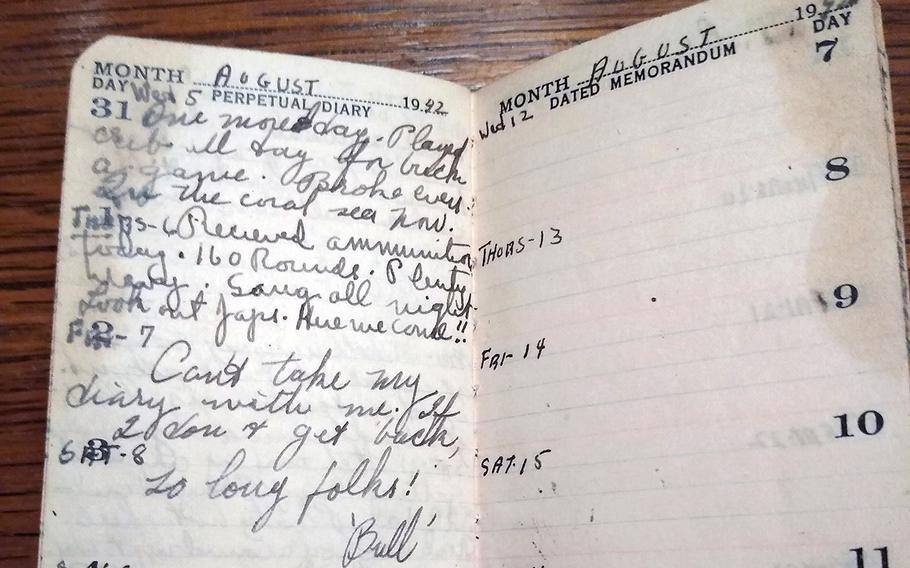 MONTH AUGUST
DAY Wed 5 PERPETUAL DIARY 1942
31 One more day. Played
crib all day for buck
a game. Broke even.
In the coral sea now.
1 THURS-6 Recieved ammunition
today. 160 Rounds. Plenty
heavy. Sang all night.
Look out Japs. Here we come!!
2 FRI-7
Can't take my
diary with me. If
I don't get back,
3 SAT-8
So long folks!
'Bull'
MONTH AUGUST 19
DATED MEMORANDUM DAY
Wed 12 7
8
THORS-13
9
FRI-14
10
SAT-15
11